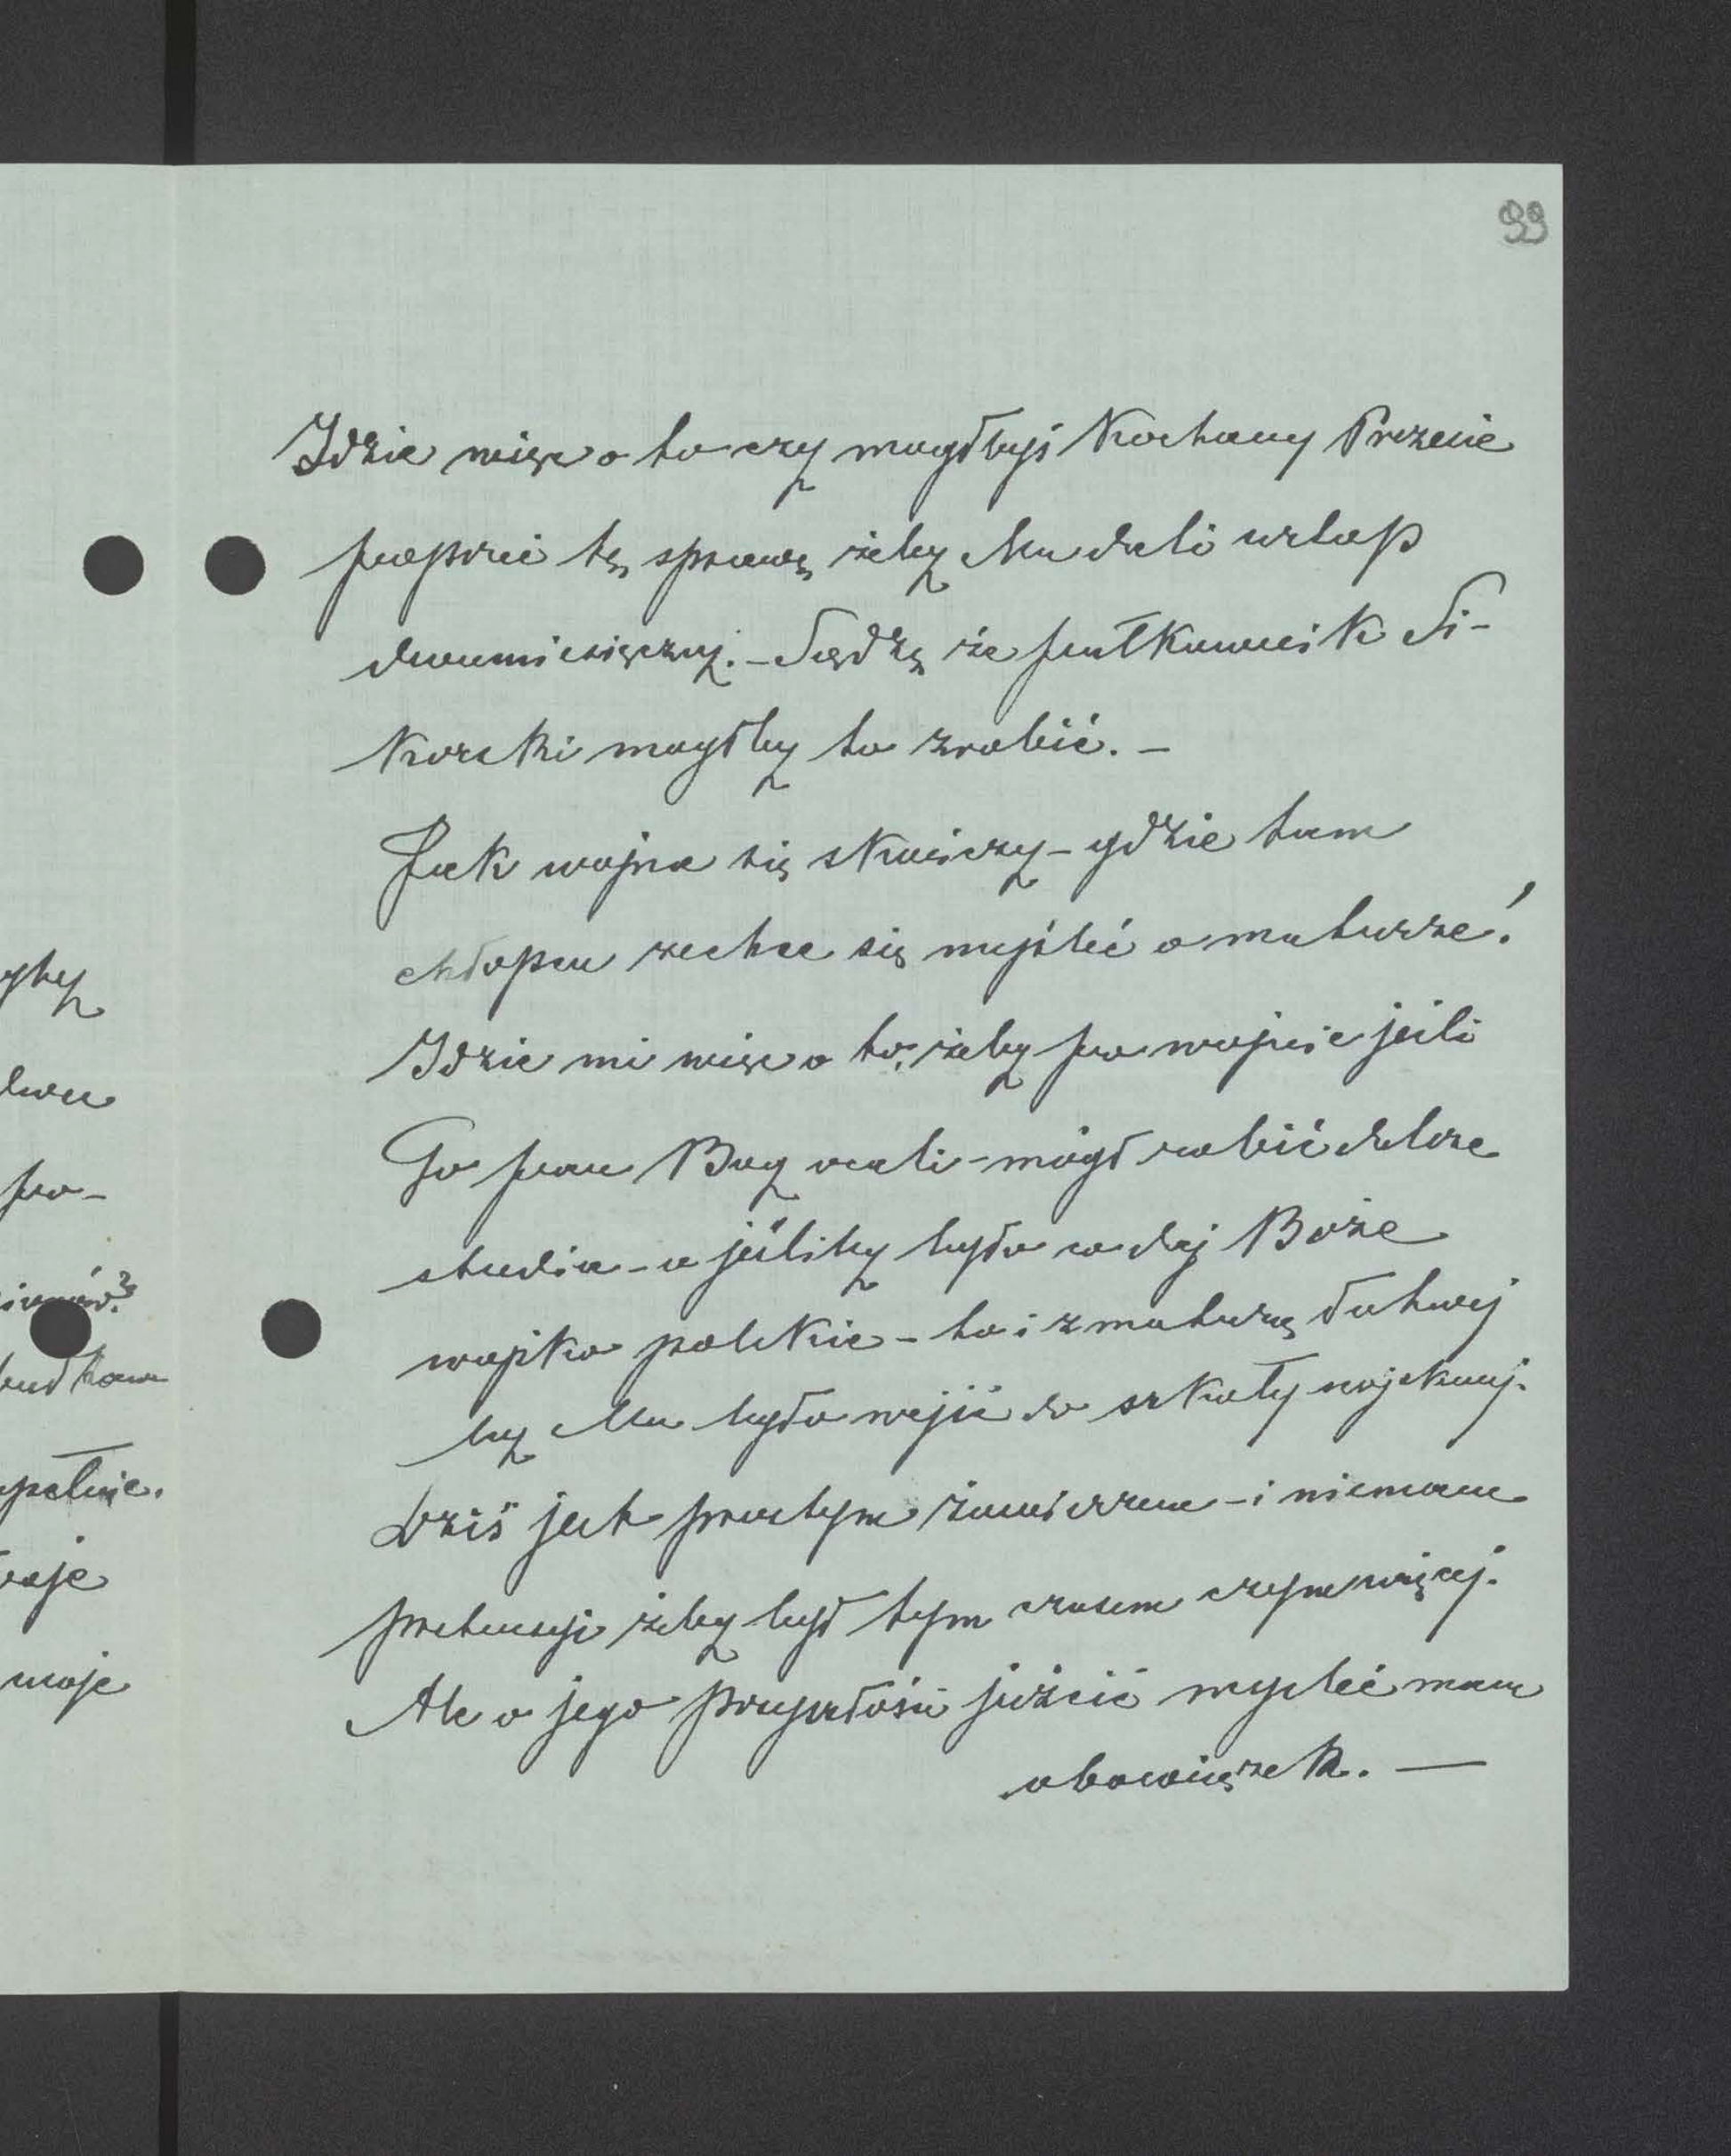 99
Idzie więc o to czy mogłbyś Kochany Prezesie
poprzeć tę sprawę żeby Mu dali urlop
dwumiesięczny. – Sądzę że pułkownik Si-
korski mogłby to zrobić. –
Jak wojna się skończy – gdzie tam
chłopcu zechce się myśleć o maturze!
Idzie mi więc o to, żeby po wojnie jeśli
Go pan Bog ocali – mógł robić dalsze
studia – a jeśliby było co daj Boże
wojsko polskie – to i z maturą łatwiej
by Mu było wejść do szkoły wojskowej.
Dziś jest prostym żołnierzem – i niemam
pretensyi żeby był tym czasem czym więcej.
Ale o jego przyszłości jużcić myśleć mam
obowiązek. —
pro-
zupełnie.
moje